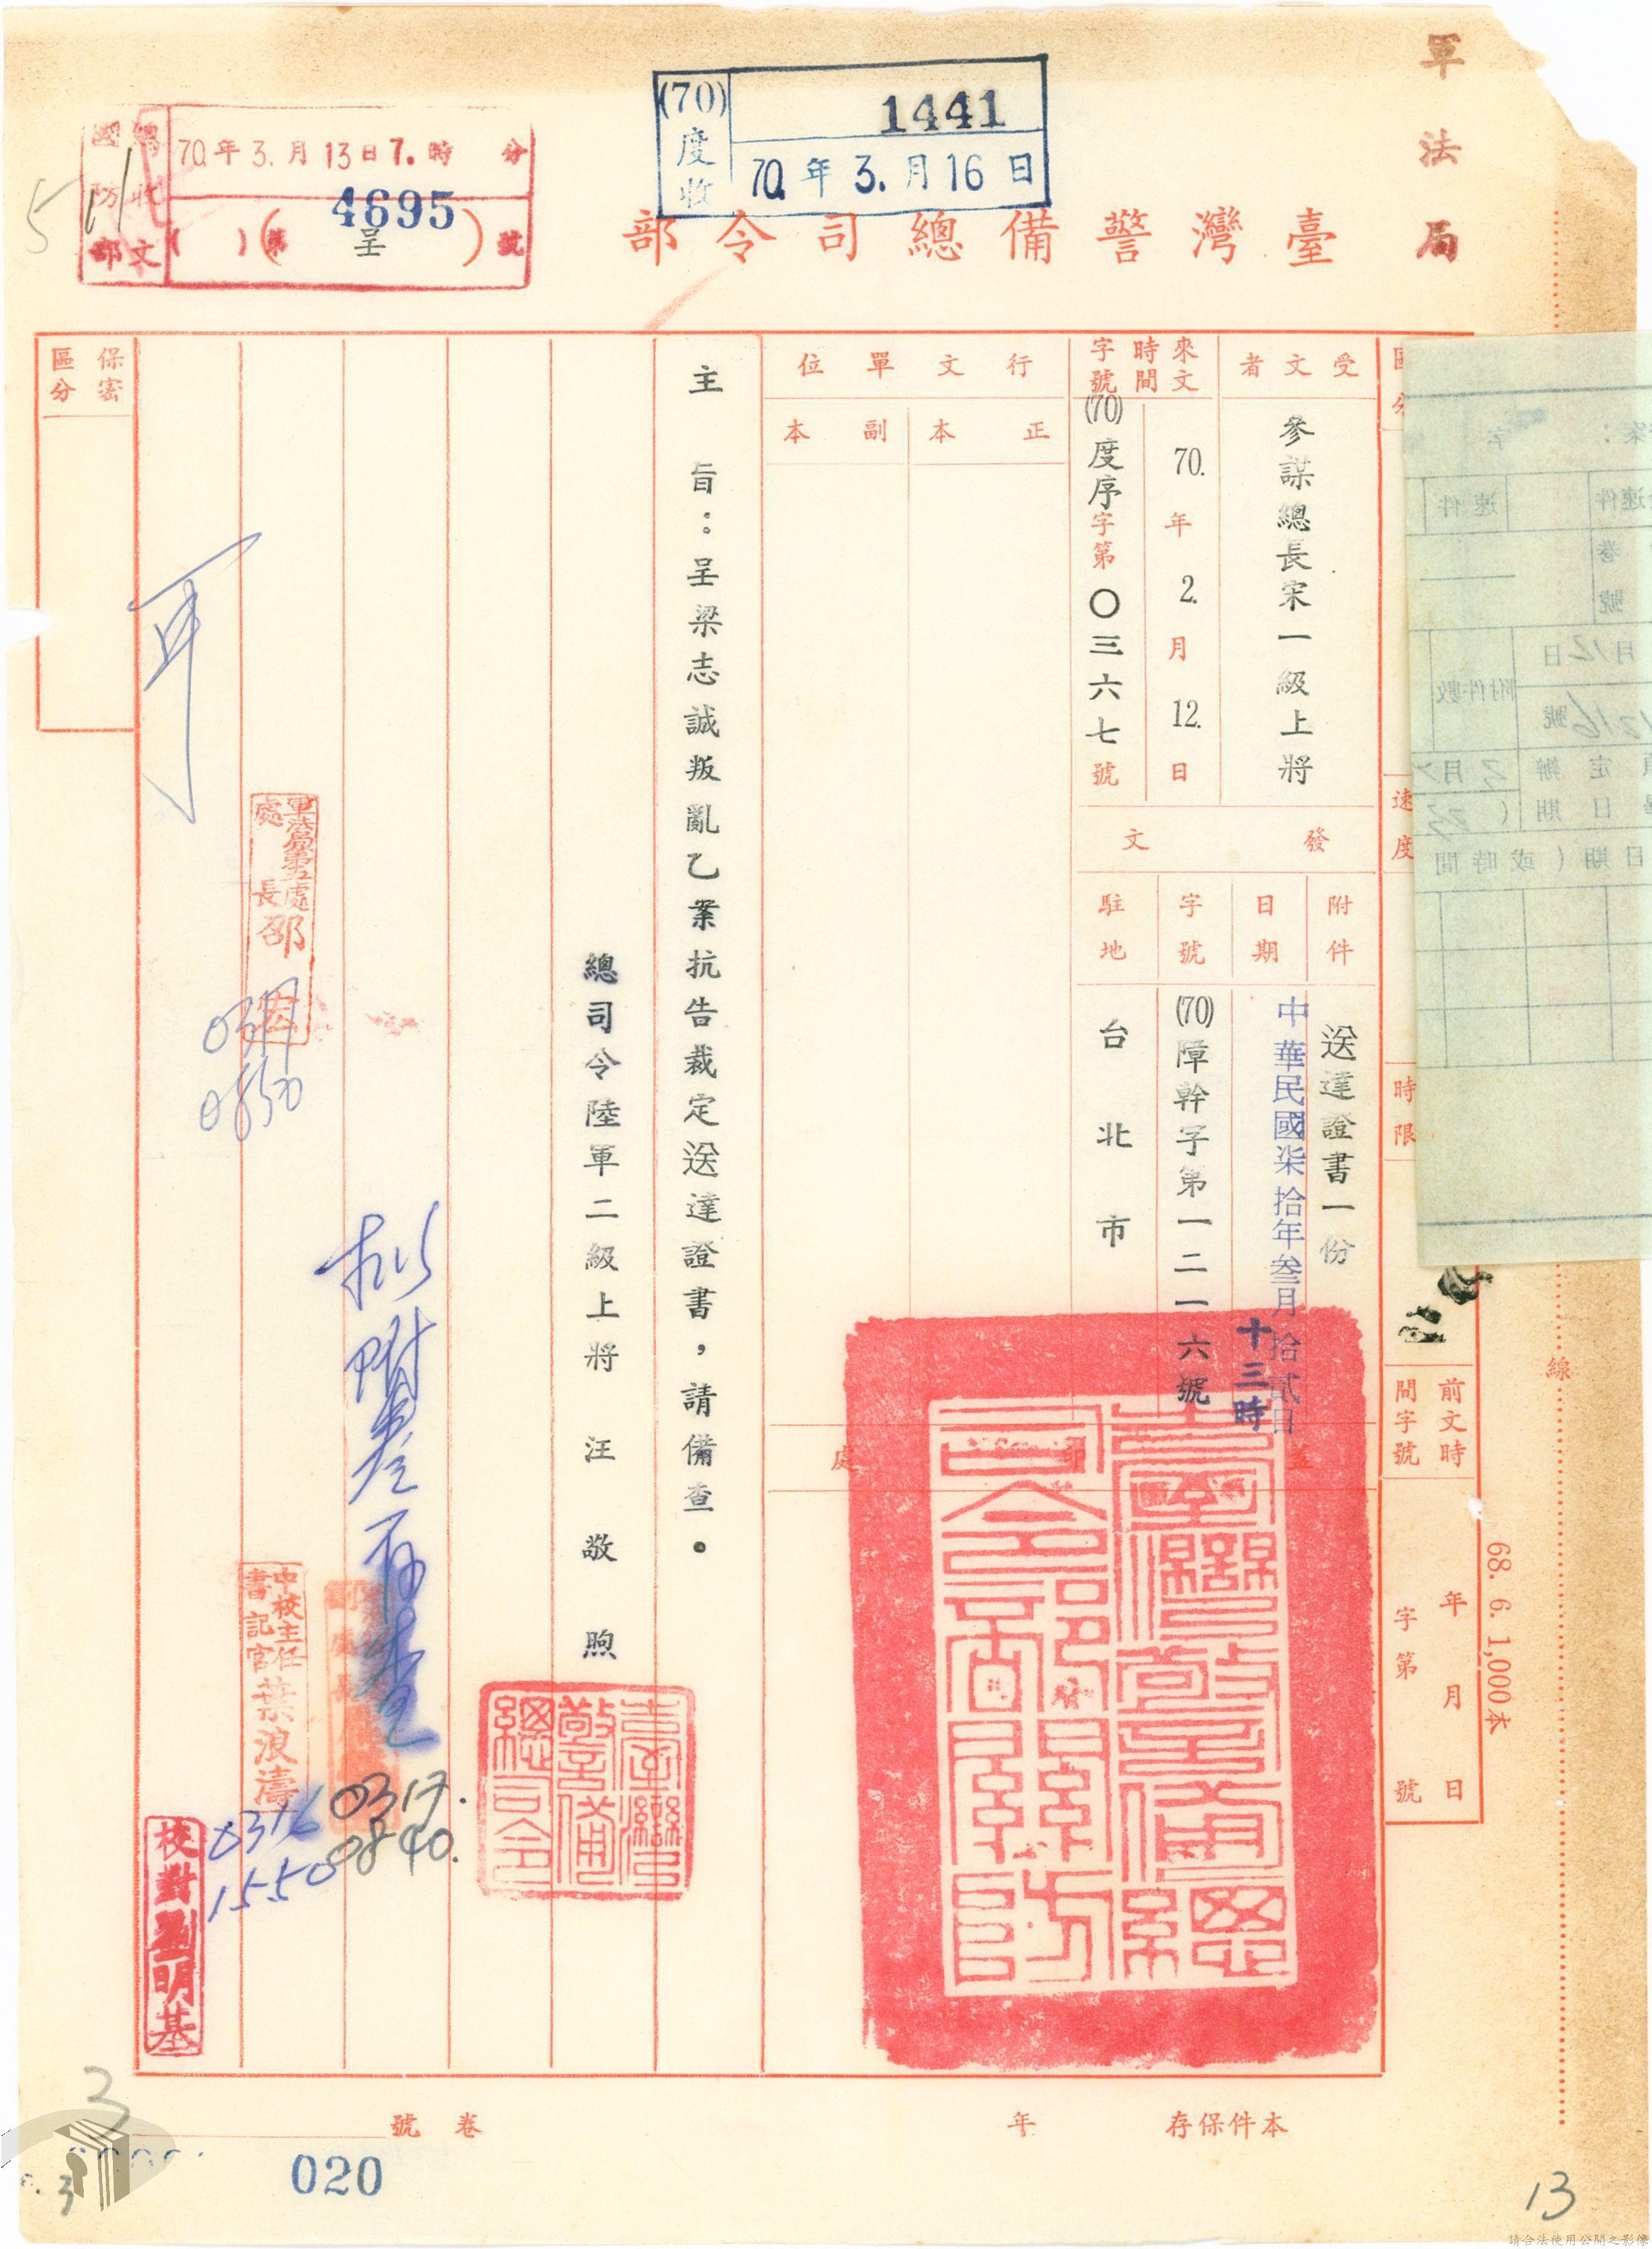 軍法局
(70)度收
1441
70年3.月16日
國防部
總收文
70年3.月13日7.時 分
4695
( )(第 呈 )號
臺灣警備總司令部
速度
時限
前文時間字號
年 月 日
字第 號
受文者
參謀總長宋一級上將
來文時間字號
70.年2.月12.日
(70)度序字第〇三六七號
發文
附件
送達證書一份
日期
中華民國柒拾年叁月拾貳日
十三時
字號
(70)障幹字第一二一六號
駐地
台北市
行文單位
正本
副本
蓋印處
臺灣警備總司令部關防
主旨：呈梁志誠叛亂乙案抗告裁定送達證書，請備查。
總司令陸軍二級上將汪敬煦
臺灣警備總司令
保密區分
軍法局第五處處長邵
0850
中校主任書記官葉浪濤
0316
1550
0317.
0840.
校對劉明基
68. 6. 1,000本
線
速件
附件數
月12日
本件保存 年
卷 號
020
3
3
13
請合法使用公開之影像